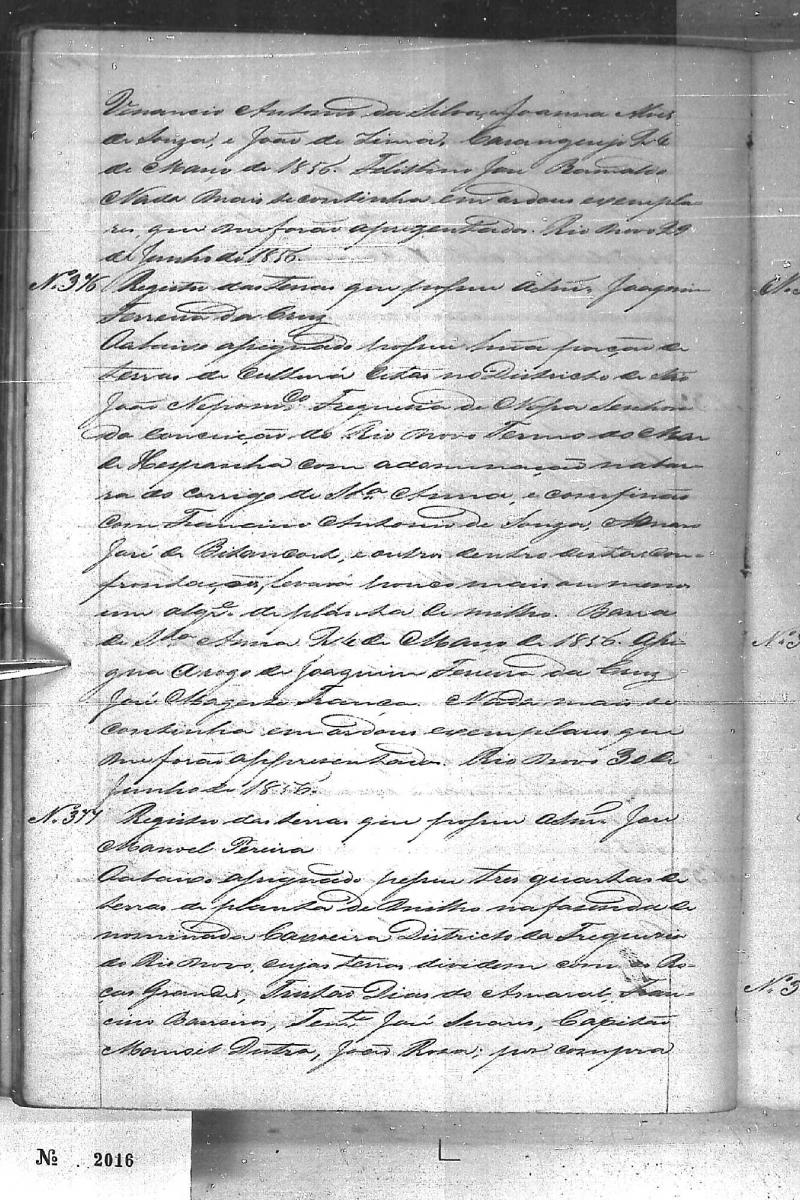 Venancio Antonio da Silva, e Joanna Ma
de Souza, e João de Lima. Carangueijo 24
de Março de 1856. José Ramalho
Nada mais se continha em os dous exempla-
res, que me forão aprezentados. Rio Novo 29
de Junho de 1856.
Nº 376 Registro das terras que possue o Joaquim
Ferreira da Cruz
O abaixo assignado possue huã porção de
terras de Cultura citas no Districto de São
João Nepomº Freguesia de Nossa Senhora
da Conceição do Rio Novo Termo do Mar
de Hespanha com a denominação
do corrigo de Stª Anna, e confinão
com Francisco Antonio de Souza,
José de Bitancort, e outros dentro destas con-
frontaçoẽs, levará pouco mais ou menos
um alqrº de planta de milho. Barra
de Stª Anna 24 de Março de 1856. Assi-
gna Arogo de Joaquim Ferreira da Cruz
José Franco. Nada mais se
continha em os dous exemplares que
me forão appresentados. Rio Novo 30 de
Junho de 1856.
Nº 377 Registro das terras que possue o José
Manoel Pereira
O abaixo assignado possue tres quartas de
terras de planta de milho na fazenda de
nominada Caxoeira Districto da Freguesia
do Rio Novo, cujas terras dividem com os Ro-
cas Grandes, Tristão Dias do Amaral, Fran-
cisco Barreiros, Tente José Soares, Capitão
Manoel Dutra, João Rosa; por compra
Nº 2016